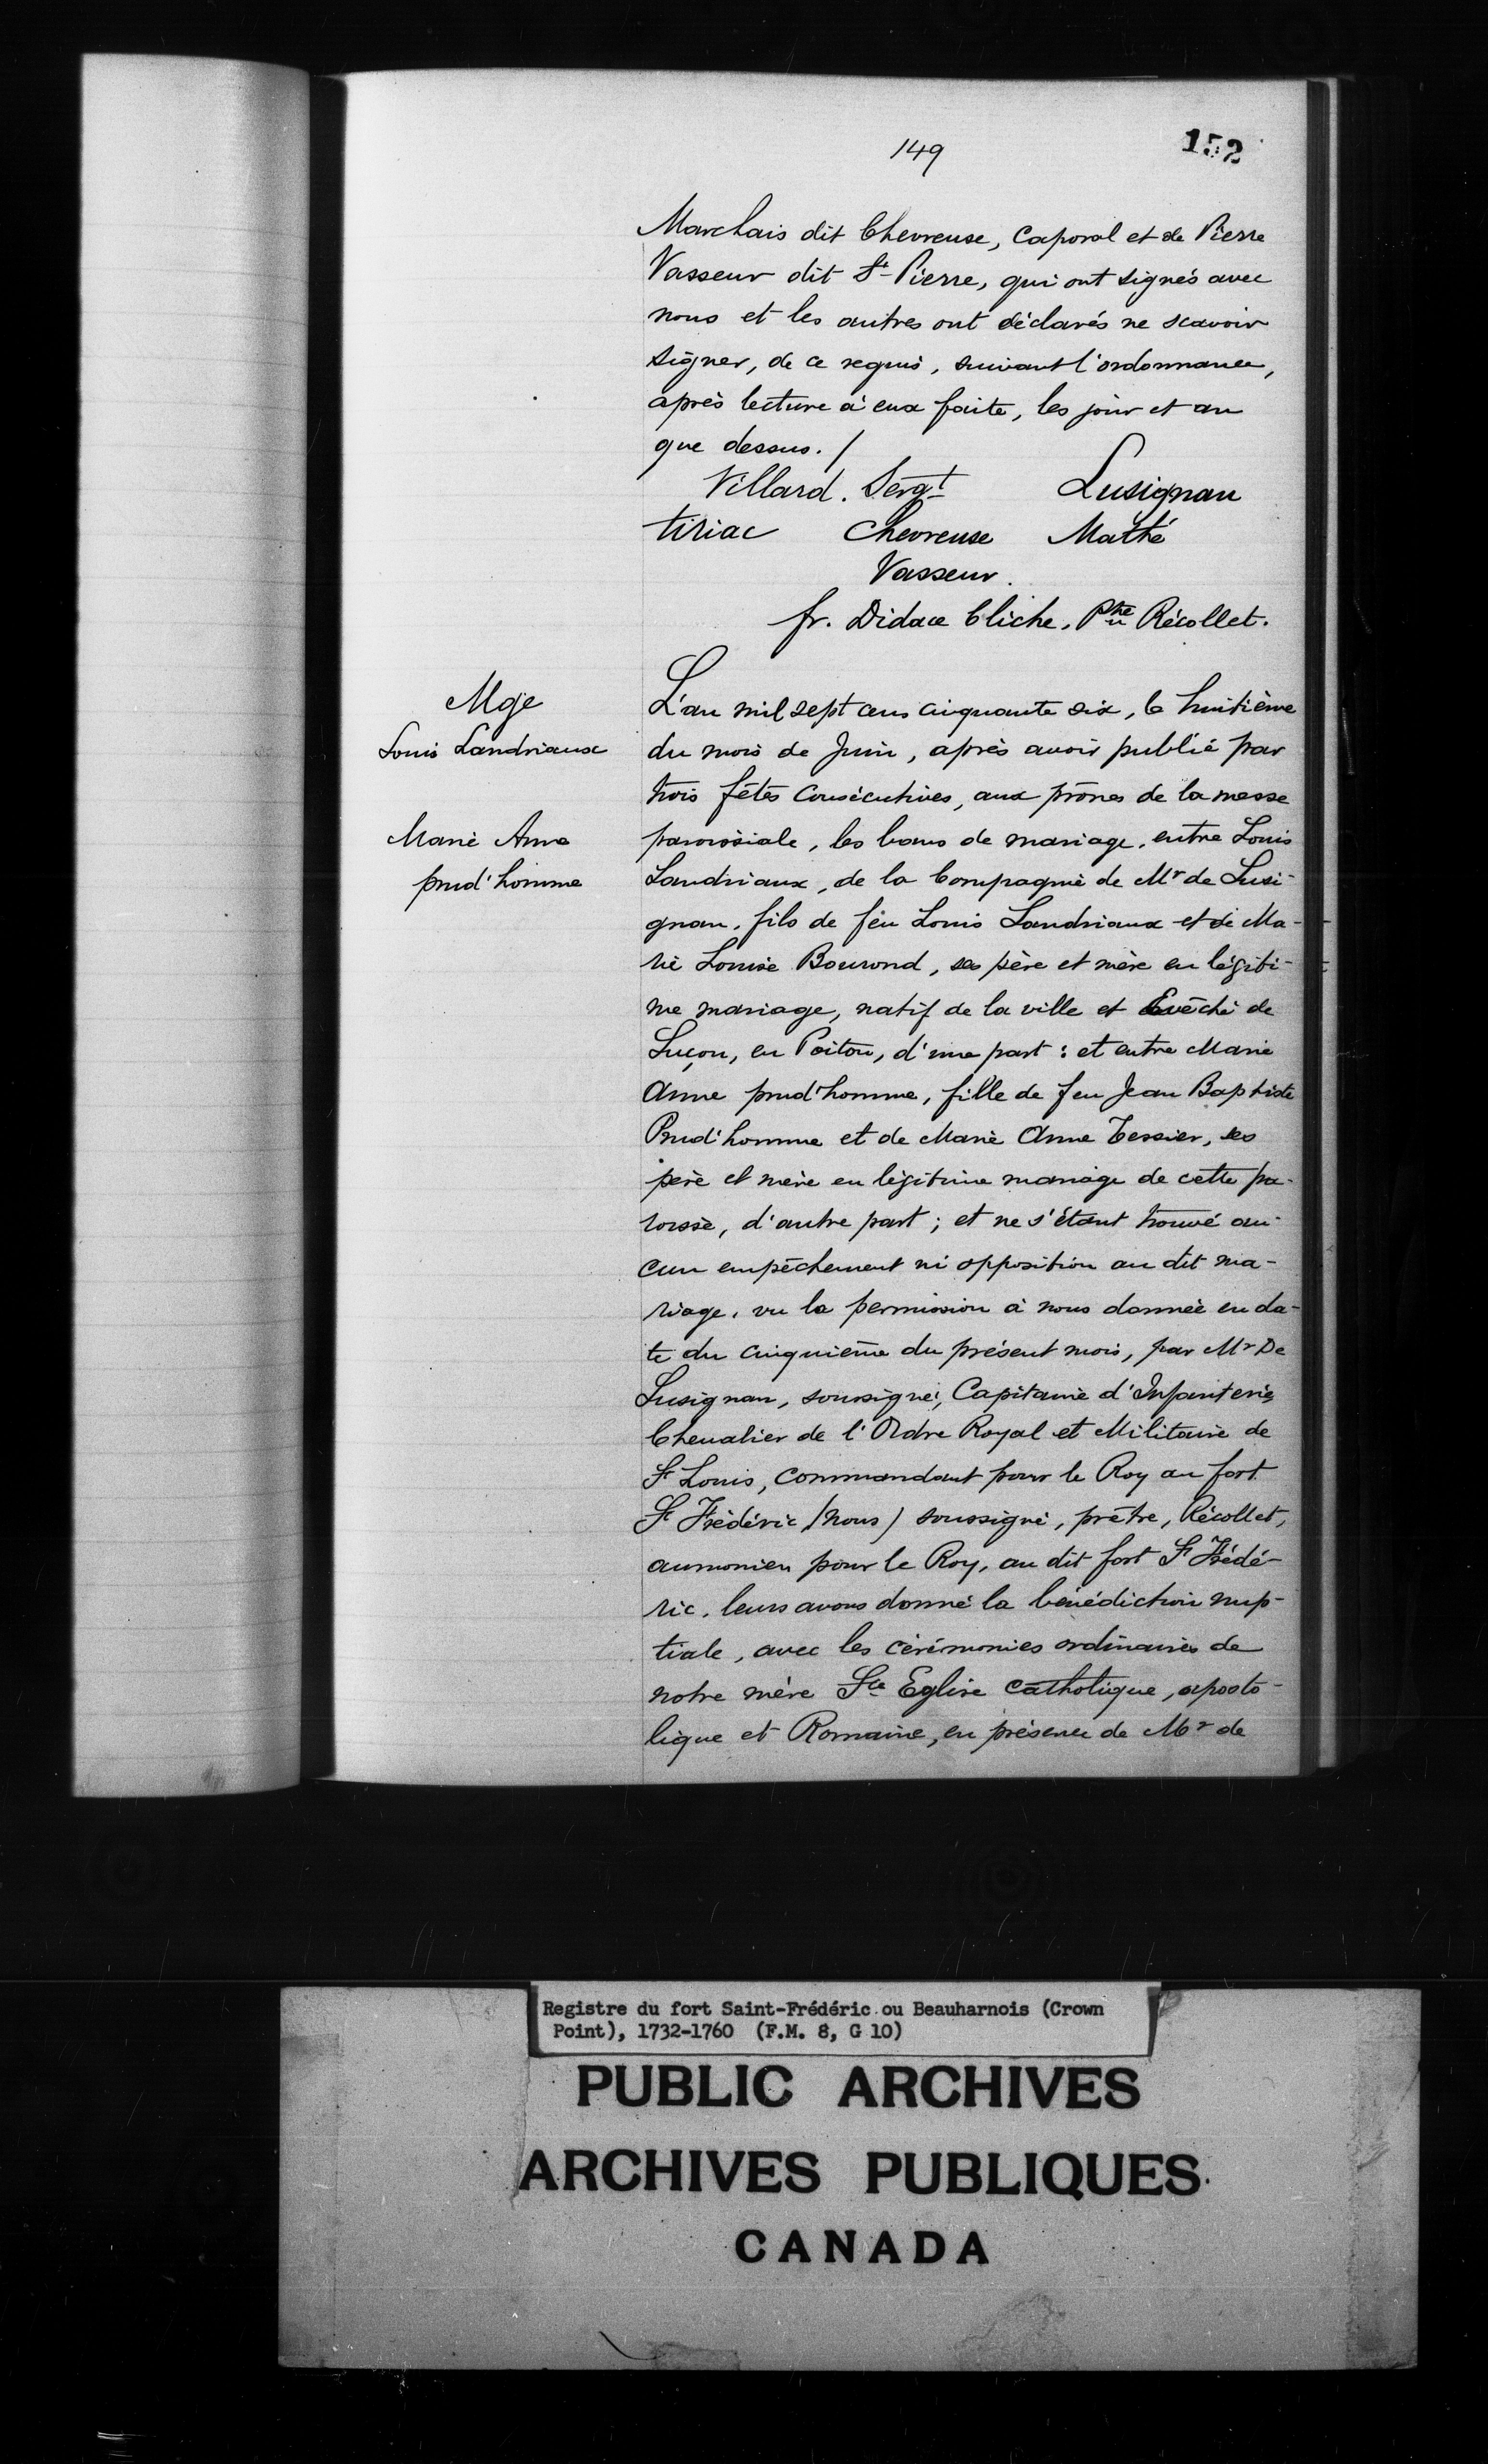 149
152
Marchais dit Chevreuse, Caporal et de Pierre
Vasseur dit St-Pierre, qui ont signés avec
nous et les autres ont déclarés ne scavoir
signer, de ce requis, suivant l'ordonnance,
après lecture à eux faite, les jour et an
que dessus. /
Villard. Sergt Lusignan
tiriac Chevreuse Mathé
Vasseur.
fr. Didace Cliche, Ptre Récollet.
Mge
Louis Landriaux
Marie Anne
prud'homme
L'an mil sept cens cinquante six, le huitième
du mois de Juin, après avoir publié par
trois fêtes consécutives, aux prônes de la messe
paroissiale, les bans de mariage, entre Louis
Landriaux, de la Compagnie de Mr de Lusi-
gnan, fils de feu Louis Landriaux et de Ma-
rie Louise Bourond, ses père et mère en légiti-
me mariage, natif de la ville et Evêché de
Luçon, en Poitou, d'une part : et entre Marie
Anne prud'homme, fille de feu Jean Baptiste
Prud'homme et de Marie Anne Tessier, ses
père et mère en légitime mariage de cette pa-
roisse, d'autre part ; et ne s'étant trouvé au-
cun empêchement ni opposition au dit ma-
riage, vu la permission à nous donnée en da-
te du cinquième du présent mois, par Mr De
Lusignan, soussigné, Capitaine d'Infanterie,
Chevalier de l'Ordre Royal et Militaire de
St Louis, commandant pour le Roy au fort
St Frédéric /nous/ soussigné, prêtre, Récollet,
aumonier pour le Roy, au dit fort St Frédé-
ric, leurs avons donné la bénédiction nup-
tiale, avec les cérémonies ordinaires de
notre mère Ste Eglise catholique, aposto-
lique et Romaine, en présence de Mr de
Registre du fort Saint-Frédéric ou Beauharnois (Crown
Point), 1732-1760 (F.M. 8, G 10)
PUBLIC ARCHIVES
ARCHIVES PUBLIQUES
CANADA